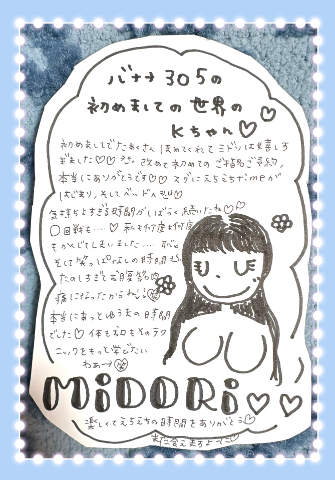 バナナ305の
初めましての世界の
Kちゃん♡♡
初めましてでたくさんほめてくれてミドリは嬉しす
ぎました♡♡ 改めて初めてのご指名ご予約、
本当にありがとうです♡♡ スグにえちえちtimeが
はじまり、そしてベッド
気持ちよすぎる時間がしばらく続いたね♡♡
〇回戦も…♡ 私も何度も何度
もかんじてしまいました…
そして笑っぱなしの時間
たのしすぎてお腹筋肉
痛になったからね
本当にあっとゆうまの時間
でした♡ 体もお口もそのテク
ニックをもっと学びたい
わぁー
MiDORi♡♡
楽しくてえちえちの時間をありがとう♡
また会えますよーに♡